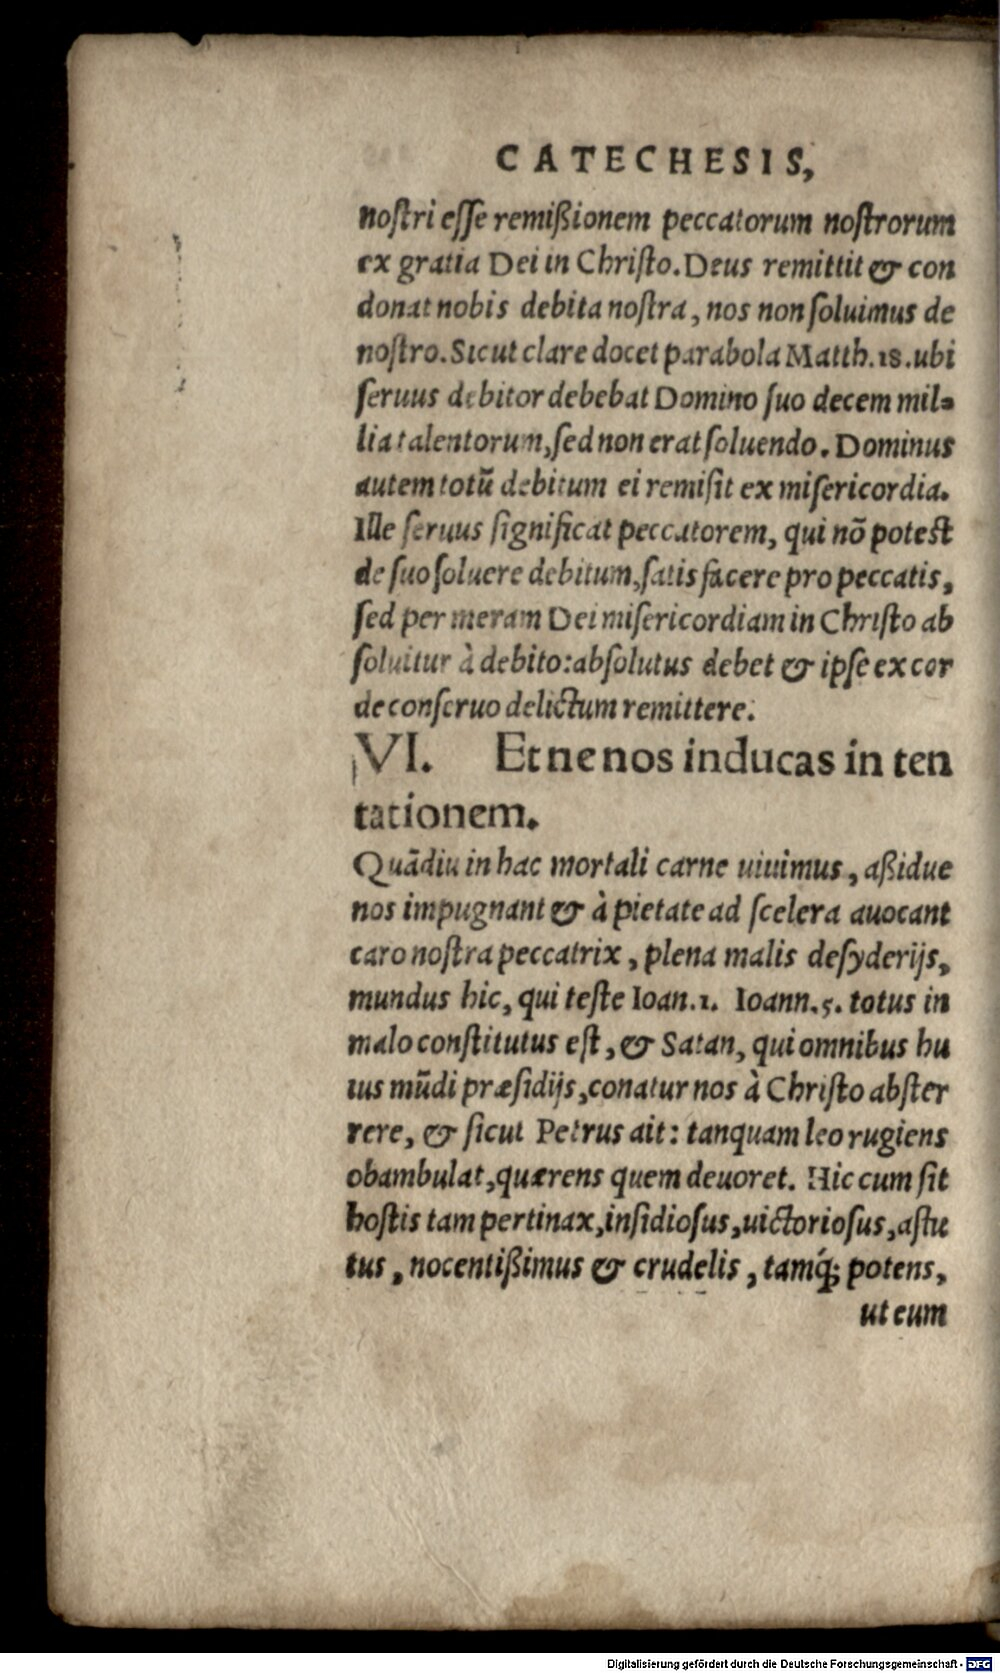 CATECHESIS,
noſtri eſſe remißionem peccatorum noſtrorum
ex gratia Dei in Chriſto. Deus remittit & con
donat nobis debita noſtra, nos non ſoluimus de
noſtro. Sicut clare docet parabola Matth. 18. ubi
ſeruus debitor debebat Domino ſuo decem mil-
lia talentorum, ſed non erat ſoluendo. Dominus
autem totũ debitum ei remiſit ex miſericordia.
Ille ſeruus ſignificat peccatorem, qui nõ poteſt
de ſuo ſoluere debitum, ſatis facere pro peccatis,
ſed per meram Dei miſericordiam in Chriſto ab
ſoluitur à debito: abſolutus debet & ipſe ex cor
de conſeruo delictum remittere.
VI. Et ne nos inducas in ten
tationem.
Quãdiu in hac mortali carne uiuimus, aßidue
nos impugnant & à pietate ad ſcelera auocant
caro noſtra peccatrix, plena malis deſyderijs,
mundus hic, qui teſte Ioan. 1. Ioann. 5. totus in
malo conſtitutus eſt, & Satan, qui omnibus hu
ius mũdi præſidijs, conatur nos à Chriſto abſter
rere, & ſicut Petrus ait: tanquam leo rugiens
obambulat, quærens quem deuoret. Hic cum ſit
hoſtis tam pertinax, inſidioſus, uictorioſus, aſtu
tus, nocentißimus & crudelis, tamq́; potens,
ut eum
Digitalisierung gefördert durch die Deutsche Forschungsgemeinschaft - DFG